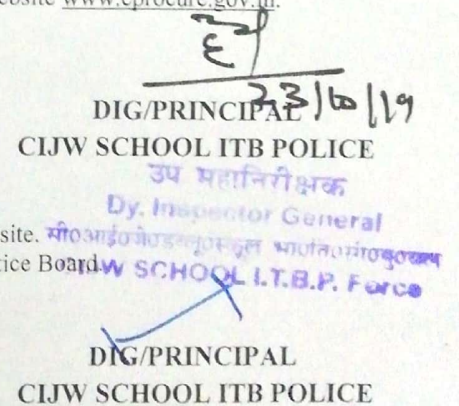 website www.eprocure.gov.in.
23/10/19
DIG/PRINCIPAL
CIJW SCHOOL ITB POLICE
उप महानिरीक्षक
Dy. Inspector General
site.
tice Board
CIJW SCHOOL I.T.B.P. Force
DIG/PRINCIPAL
CIJW SCHOOL ITB POLICE